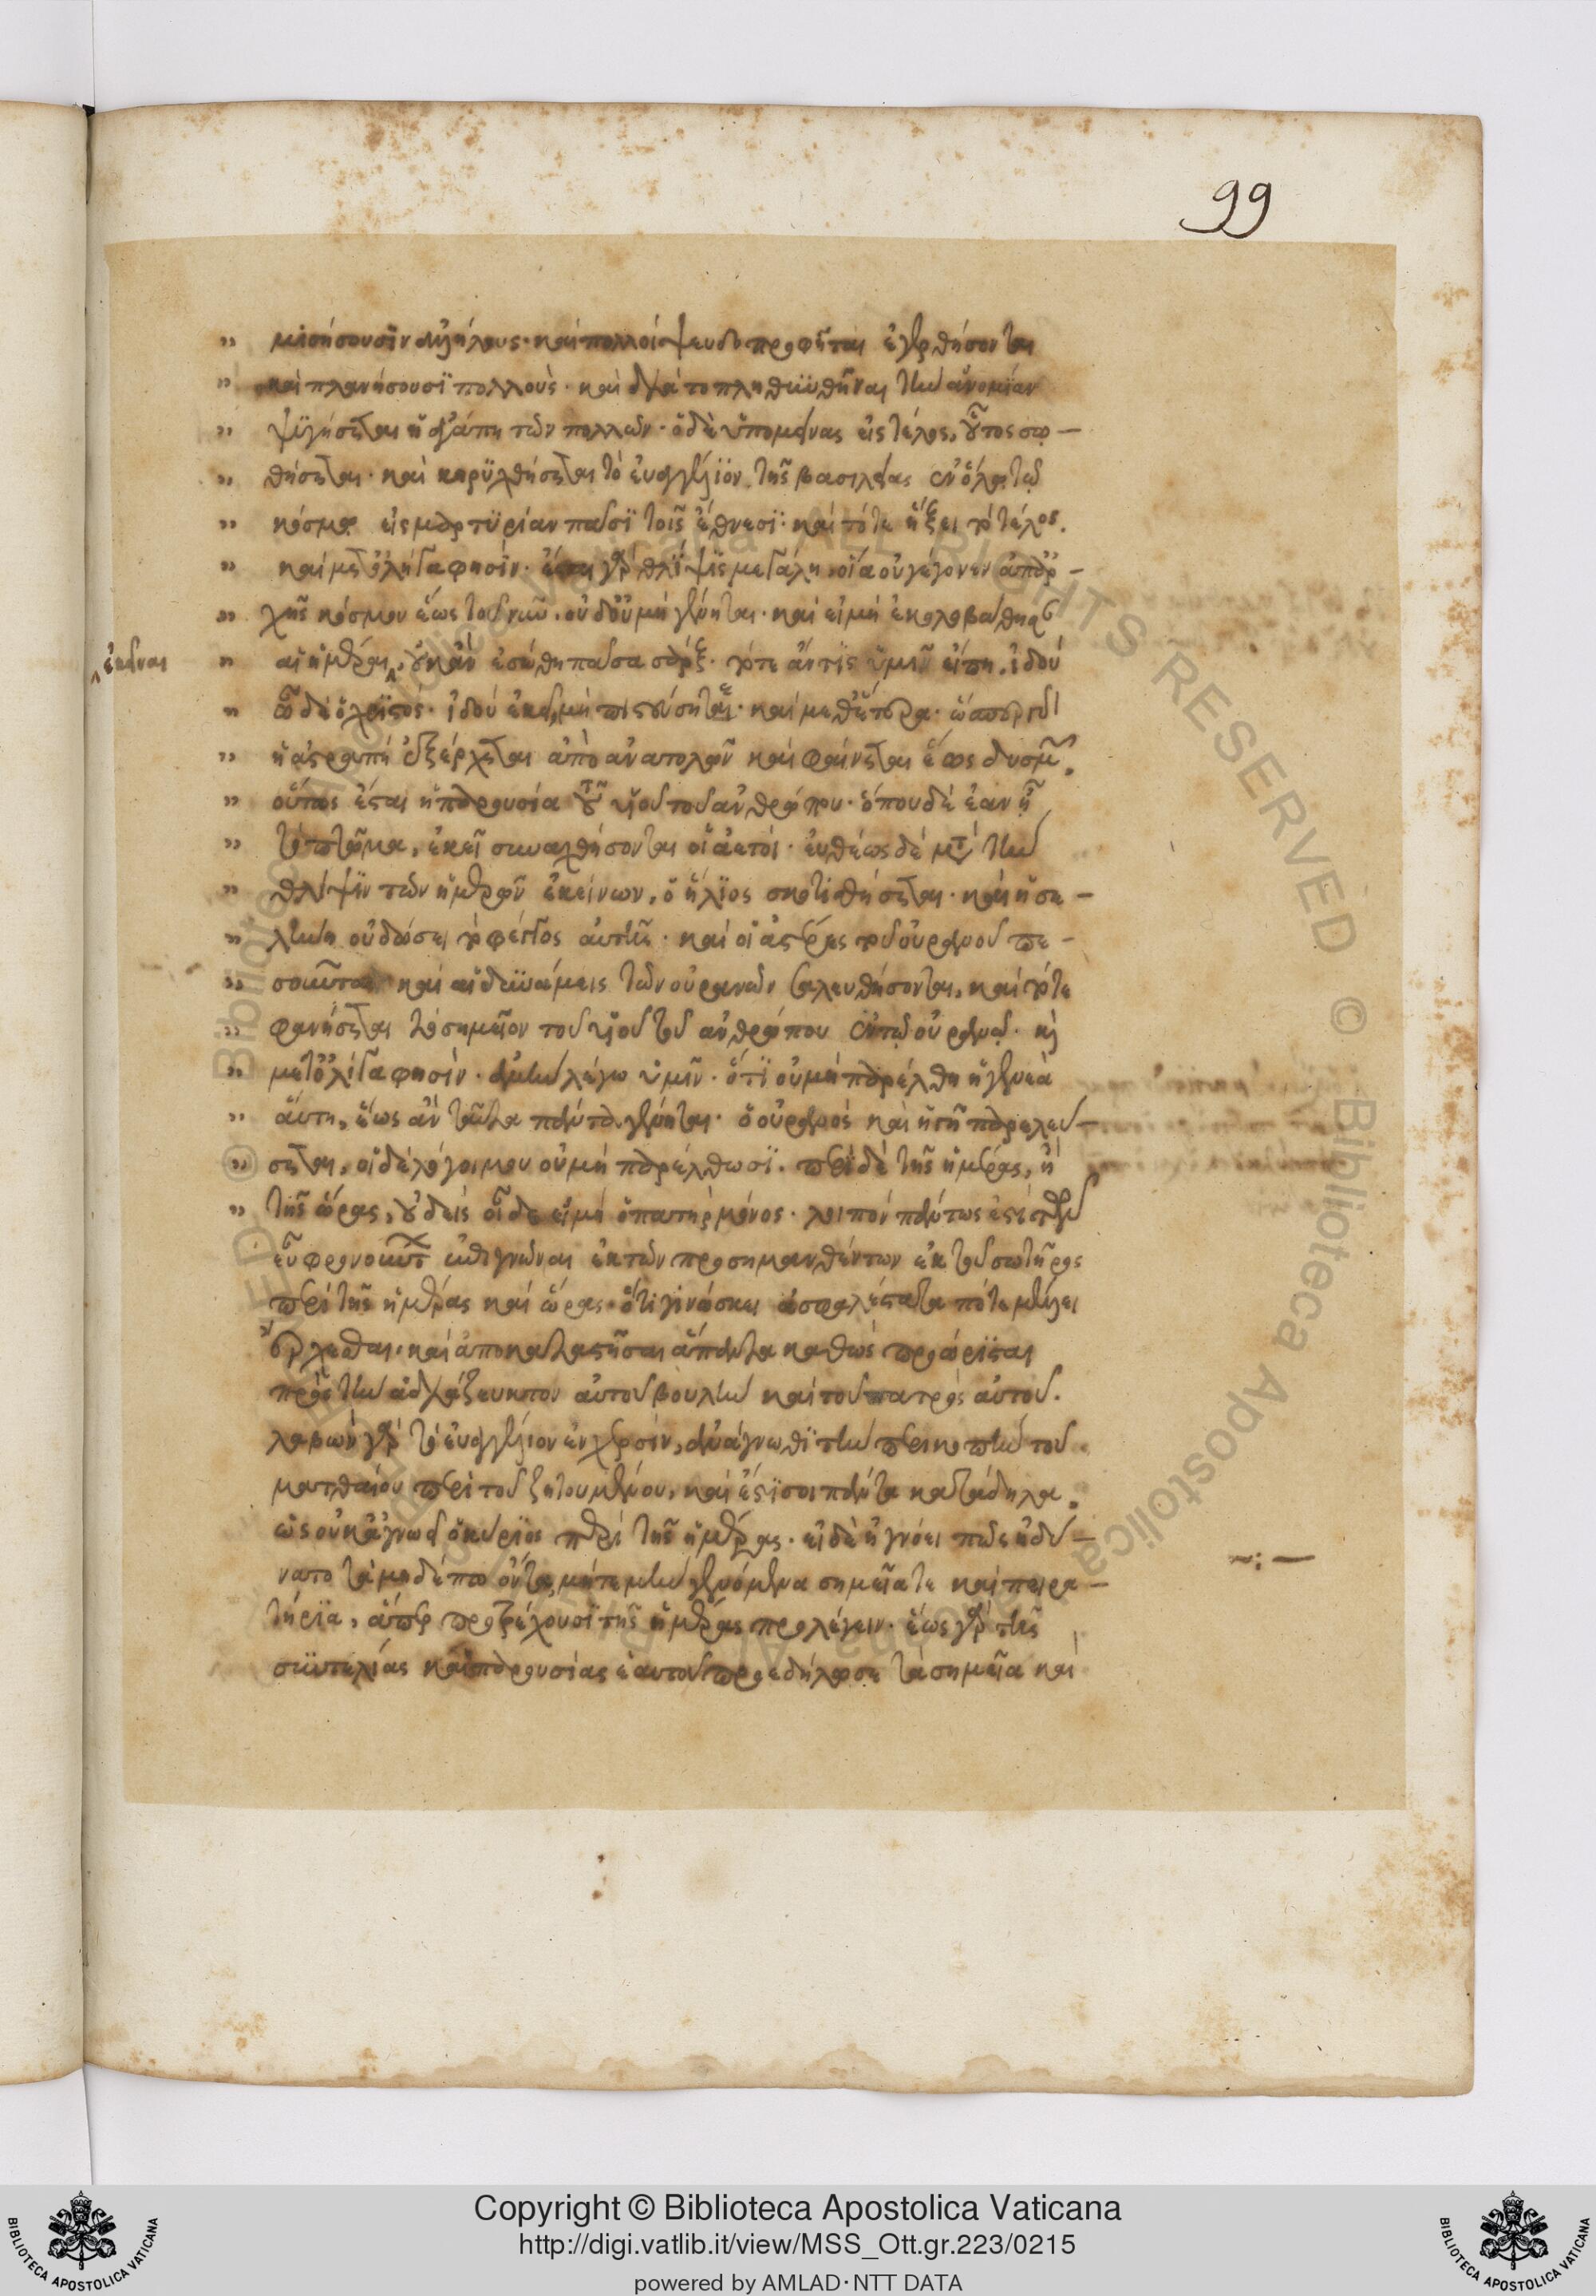 99
μισήσουσιν ἀλλήλους· καὶ πολλοί ψευδοπροφῆται ἐγερθήσονται
καὶ πλανήσουσϊ πολλοὺς· καὶ διὰ το πληθϋνθῆναι τὴν ἀνομίαν
ψϋγήσεται ἡ ἀγάπη τῶν πολλῶν· ὁ δὲ ὑπομείνας εἰς τέλος, οὗτος σω-
θήσεται· καὶ κηρϋχθήσεται τὸ εὐαγγέλϊον τῆς βασιλείας ἐν ὅλω τῷ
κόσμω εἰς μαρτϋρίαν πᾶσϊ τοῖς ἔθνεσϊ· καὶ τότε ἥξει τὸ τέλος.
καὶ μετ' ὀλίγα φησὶν· ἔσται γὰρ θλῖψϊς μεγάλη, οἵα οὐ γέγονεν ἀπ' ἀρ-
χῆς κόσμου ἕως τοῦ νῦν. οὐδ' οὐ μὴ γένηται· καὶ εἰ μὴ ἐκολοβώθησ
αἱ ἡμέραι, οὐκ ἂν ἐσώθη πᾶσα σάρξ· τότε ἄν τϊς ὑμῖν εἴπη. ἰδού
ἐκεῖναι
ὧδε ὁ χρϊστός· ἰδού ἐκεῖ, μὴ πιστεύσηται· καὶ μεθ' ἕτερα· ὥσπερ
ἡ ἀστραπή ἐξέρχεται ἀπὸ ἀνατολῶν καὶ φαίνεται ἕως δυσμῶν.
οὕτως ἔσται ἡ παρουσία τοῦ υἱοῦ τοῦ ἀνθρώπου· ὅπου δὲ ἐαν ᾖ
τὸ πτῶμα, ἐκεῖ συναχθήσονται οἱ ἀετοί· εὐθέως δὲ μετὰ τὴν
θλίψϊν τῶν ἡμερῶν ἐκείνων, ὁ ἥλϊος σκοτϊσθήσεται· καὶ ἡ σε-
λήνη οὐ δώσει τὸ φέγγος αὐτῆς· καὶ οἱ ἀστέρες τοῦ οὐρανοῦ πε-
σοῦνται καὶ αἱ δϋνάμεις τῶν οὐρανῶν σαλευθήσονται, καὶ τότε
φανήσεται τὸ σημεῖον τοῦ υἱοῦ τοῦ ἀνθρώπου ἐν τῷ οὐρανῷ· καὶ
μετ' ὀλίγα φησὶν· ἀμὴν λέγω ὑμῖν· ὅτϊ οὐ μὴ παρέλθη ἡ γενεὰ
αὕτη, ἕως ἂν ταῦτα πάντα γένηται· ὁ οὐρανὸς καὶ ἡ γῆ παρελεύ-
σεται, οἱ δὲ λόγοι μου οὐ μὴ παρέλθωσϊ. περὶ δὲ τῆς ἡμέρας, ἢ
τῆς ὥρας, οὐδεὶς οἶδε εἰ μὴ ὁ πατὴρ μόνος· λοιπὸν πάντως ἐστὶ
εὖ φρονοῦντ ἐπιγνῶναι ἐκ τῶν προσημανθέντων ἐκ τοῦ σωτῆρος
περὶ τῆς ἡμέρας καὶ ὥρας· ὅτι γινώσκει ἀσφαλέστατα πότε μέλλει
ἔρχεσθαι. καὶ ἀποκαταστῆσαι ἅπαντα καθὼς προώρϊσται
πρὸς τὴν ἀδιάζευκτον αὐτοῦ βουλὴν καὶ τοῦ πατρὸς αὐτοῦ.
λαβὼν γὰρ τὸ εὐαγγέλιον ἐν χερσὶν, ἀνάγνωθϊ τὴν περικοπὴν τοῦ
ματθαίου περὶ τοῦ ζητουμένου, καὶ ἔστϊ σοι πάντα κατάδηλα.
ὡς οὐκ ἀγνοεῖ ὁ κύρϊος περὶ τῆς ἡμέρας. εἰ δὲ ἠγνόει πῶς ἠδύ-
νατο τὰ μηδέπω ὄντα, μήτε μὴν γενόμενα σημεῖά τε καὶ πειρα-
τήρϊα, ἅπερ προτρέχουσϊ τῆς ἡμέρας προλέγειν· ἕως γὰρ τῆς
σϋντελείας καὶ παρουσίας ἑαυτοῦ προεδήλωσε τὰ σημεῖα καὶ
Copyright © Biblioteca Apostolica Vaticana
http://digi.vatlib.it/view/MSS_Ott.gr.223/0215
powered by AMLAD·NTT DATA